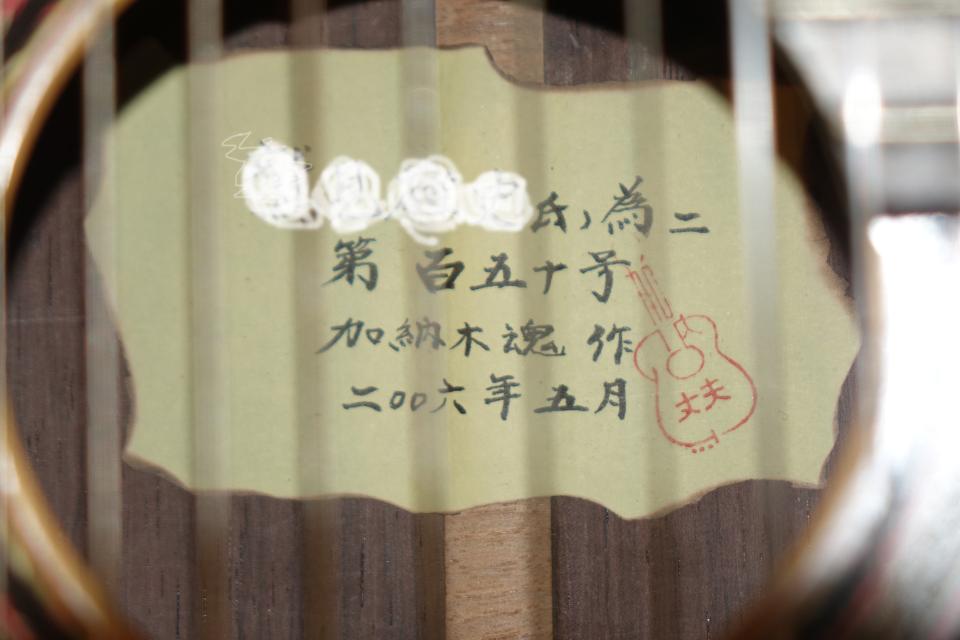 氏ノ為二
第 百五十号
加納木魂 作
二〇〇六年 五月
丈夫